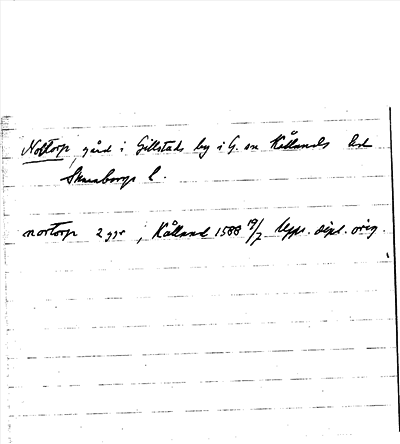 Noltorp, gård i Gillstads by i G. sn Kållands hd
Skaraborgs l.
nortorp 2 ggr i Kålland 1588 19/7 Upps. dipl. orig.